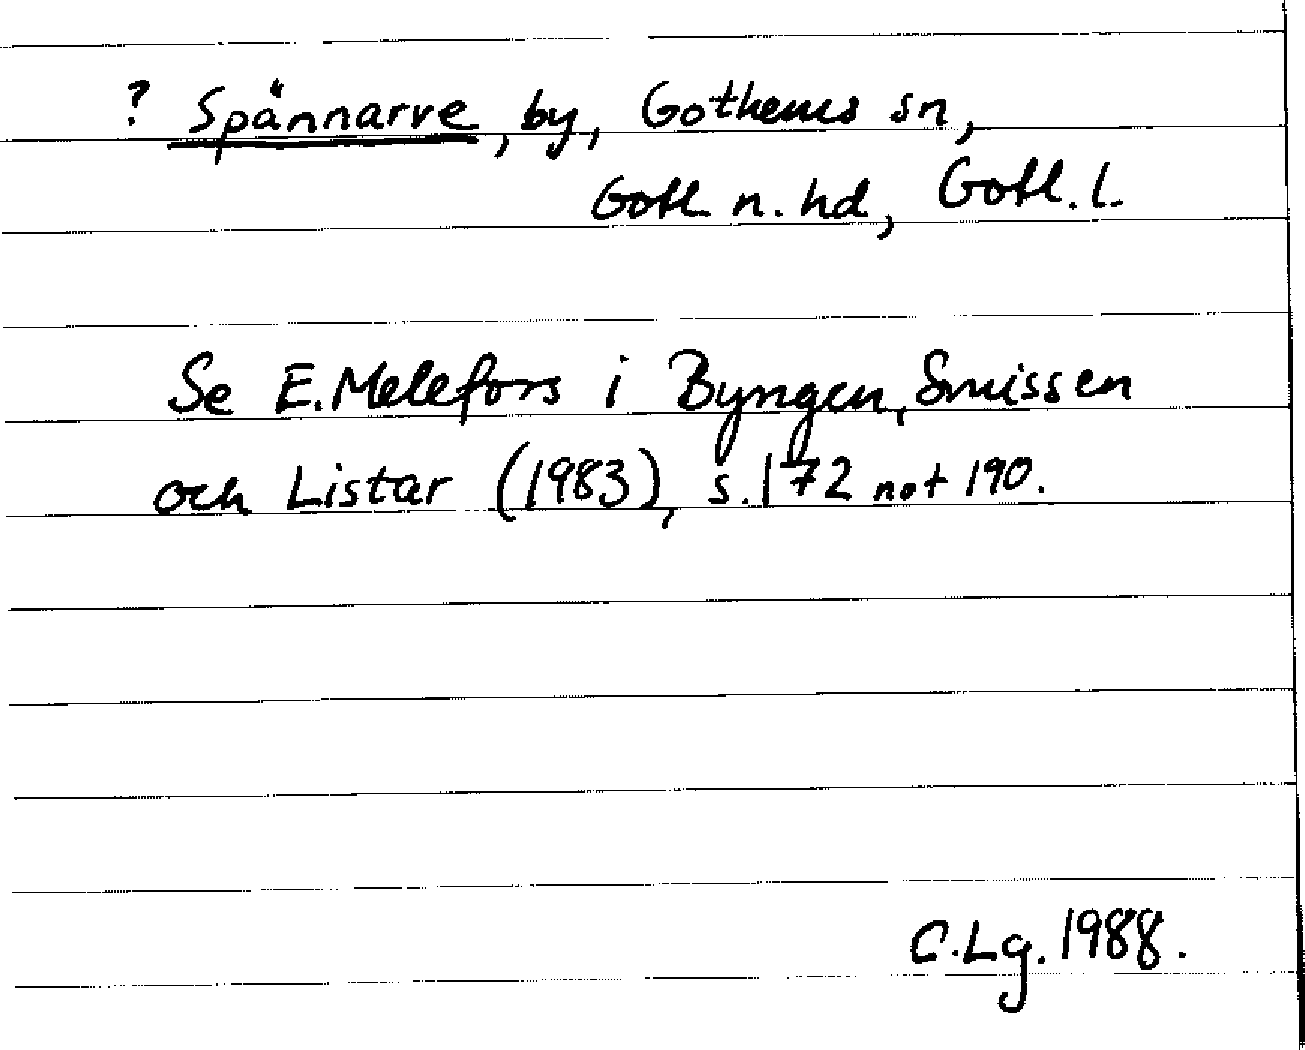 ? Spännarve, by, Gothems sn,
Gotl n. hd, Gotl. l.
Se E. Melefors i Byngen, Smissen
och Listar (1983), s. 172 not 190.
C. Lg. 1988.